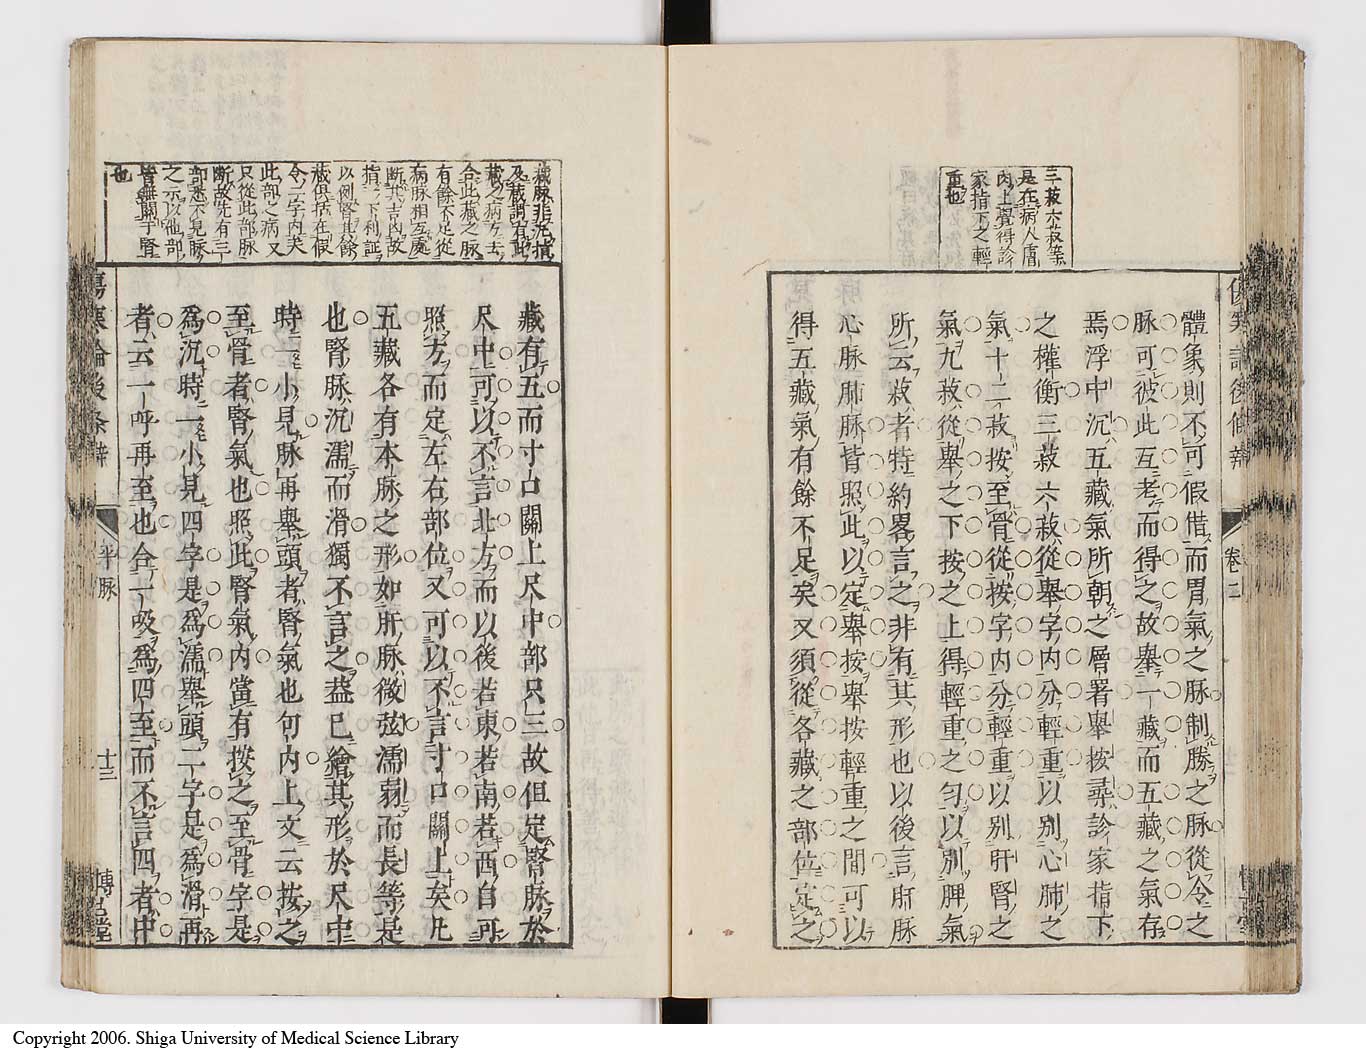 三菽六菽等
是在病人膚
肉上覺得診
家指下之輕
重也
體象則不可假借而胃氣之脉制勝之脉從令之
脉可彼此互考而得之故舉一藏而五藏之氣存
焉浮中沉五藏氣所朝之層署舉按尋診家指下
之權衡三菽六菽從舉字內分輕重以別心肺之
氣十二菽按至骨從按字內分輕重以別肝腎之
氣九菽從舉之下按之上得輕重之勻以別脾氣
所云菽者特約畧言之非有其形也以後言肝脉
心脉肺脉皆照此以定舉按舉按輕重之間可以
得五藏氣有餘不足矣又須從各藏之部位定之
卷二
藏脉非死指
及藏謂有此
藏之病方去
合此藏之脉
有餘不足從
病脉相互處
斷其吉凶故
指之下利証
以例腎其餘
藏俱括在假
令二字內矣
此部之病又
只從此部脉
斷故先有三
部悉不見脉
之示以他部
皆無關于腎
也
藏有五而寸口關上尺中部只三故但定腎脉於
尺中可以不言北方而以後若東若南若西自可
照方而定左右部位又可以不言寸口關上矣凡
五藏各有本脉之形如肝脉微弦濡弱而長等是
也腎脉沉濡而滑獨不言之葢已繪其形於尺中
時一小見脉再舉頭者腎氣也句內上文云按之
至骨者腎氣也照此腎氣內當有按之至骨字是
爲沉時一小見四字是爲濡舉頭二字是爲滑再
者云一呼再至也合一吸爲四至而不言四者中
傷寒論後條辨
平脉
十三
博古堂